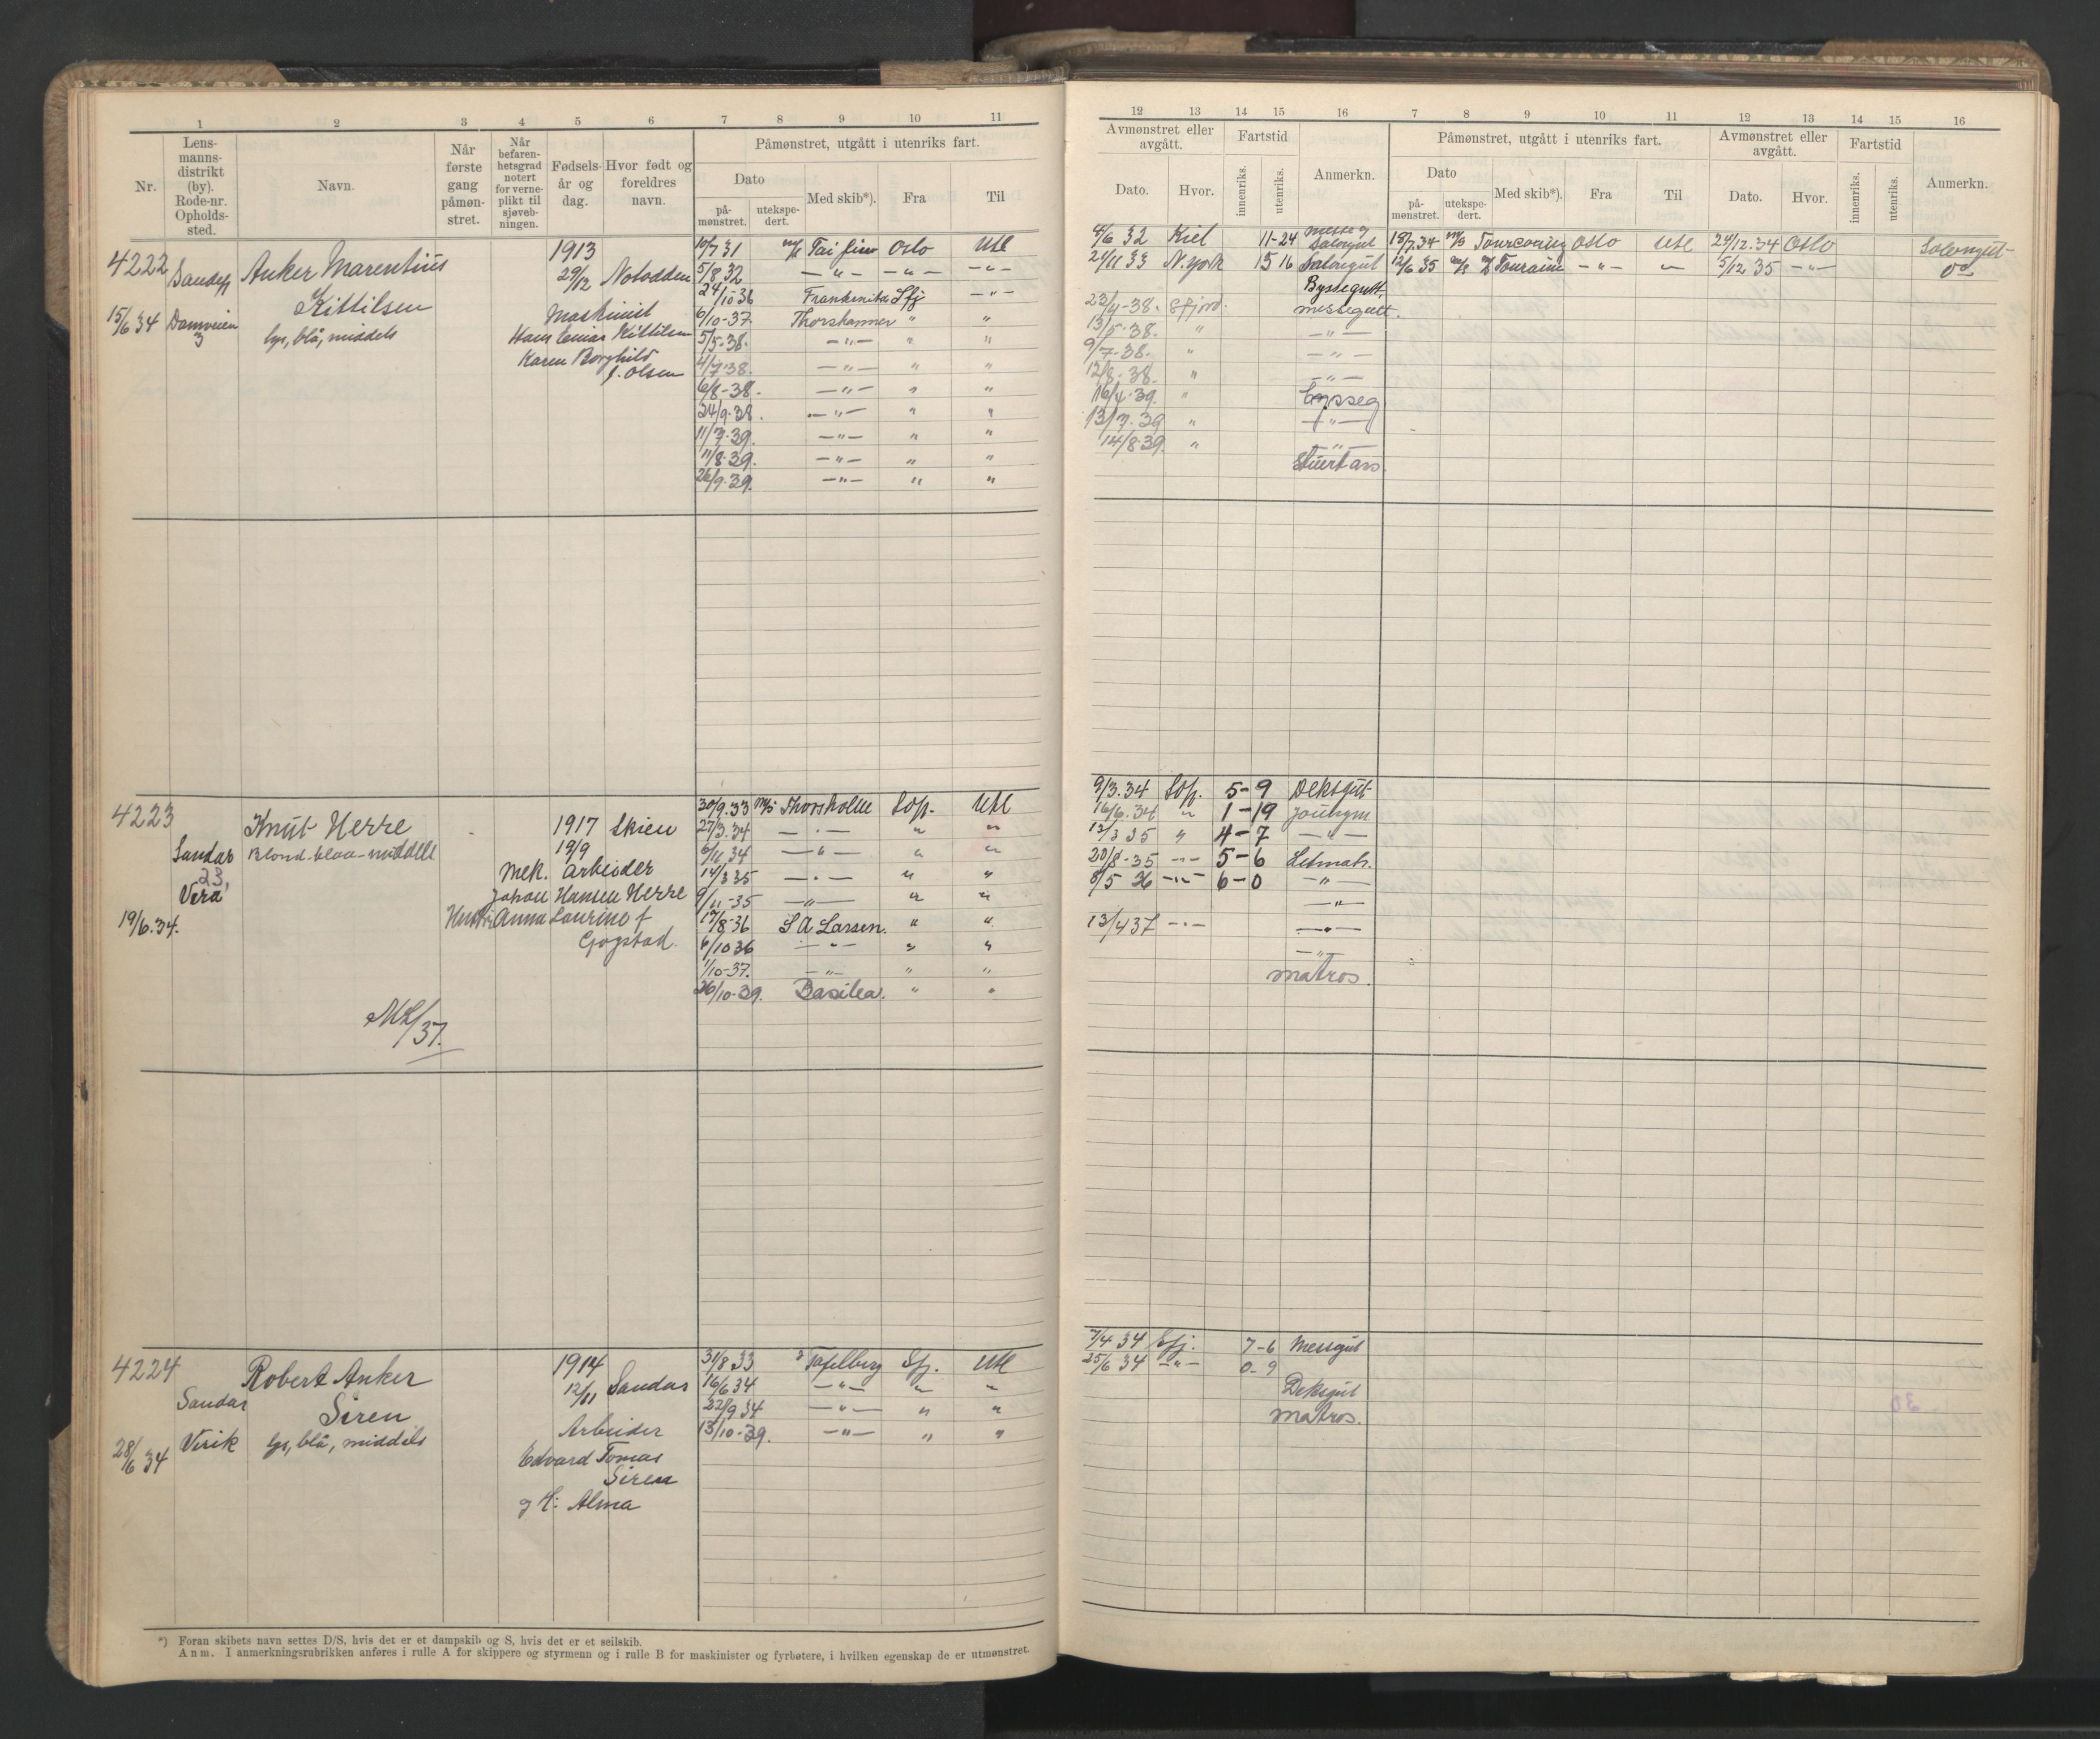 1 2 3 4 5 6 7 8 9 10 11
Nr. Lensmannsdistrikt (by). Rode-nr. Opholdssted. Navn. Når første gang påmønstret. Når befarenhetsgrad notert for verneplikt til sjøvebningen. Fødselsår og dag. Hvor født og foreldres navn. Påmønstret, utgått i utenriks fart.
Dato Med skib*). Fra Til
påmønstret. utekspedert.
4222 Sandefj Anker Marentius 1913 10/7 31 M/S Tai Oslo Utl
29/12 Notodden 5/8 32 —"— —"— —"—
Kittilsen 24/10-36 Sfj —"—
15/6 34 Damveien 3 lys, blå, middels Maskinist 6/10-37 Thorshammer " "
Hans Einar Kittilsen 5/5-38. —"— " "
Karen Borghild 4/7-38. —"— " "
f. Olsen 6/8-38. —"— " "
24/9-38. —"— " "
11/7-39. —"— " "
11/8-39. —"— " "
26/9-39. —"— " "
4223 Knut Herre 1917 Skien 30/9.33 M/S Thorsholm Sop. Utl
27/3.34 —"— " "
Sandar Blond-blaa-middels 19/9 6/11 34 —"— " "
23, Mek. Arbeider 14/3 35 —"— " "
Vera Johan Hansen Herre 9/11-35 —"— " "
19/6.34. Hustru Anna Laurine f 17/8-36 S A Larsen. " "
Gogstad. 6/10 36 —"— " "
1/10-37. —"— " "
26/10-39. Basilea. " "
/37.
4224 Robert Anker 1914 31/8 33 Tafelberg Sfj. Utl
Sandar 12/11 Sandar 16/6 34 —"— " "
Siren 22/9 34 —"— " "
28/6 34 Virik lys, blå, middels Arbeider 13/10-39. —"— " "
Edvard Tomas
Siren
og H: Alma
*) Foran skibets navn settes D/S, hvis det er et dampskib og S, hvis det er et seilskib.
Anm. I anmerkningsrubrikken anføres i rulle A for skippere og styrmenn og i rulle B for maskinister og fyrbøtere, i hvilken egenskap de er utmønstret.
12 13 14 15 16 7 8 9 10 11 12 13 14 15 16
Avmønstret eller avgått. Fartstid Anmerkn. Påmønstret, utgått i utenriks fart. Avmønstret eller avgått. Fartstid Anmerkn.
Dato. Hvor. innenriks. utenriks. Dato påmønstret. utekspedert. Med skib*). Fra Til Dato. Hvor. innenriks. utenriks.
4/6 32 Kiel 11-24 Messe og Salongut 13/7.34 M/S Tourcoing Oslo Utl 24/12.34 Oslo Salongut
21/11 33 N.york 15 16 Salongut 12/6 35 M/S Touraine —"— — 5/12 35 —"— Do
Byssegutt.
23/4-38. Sfjord. messegutt.
13/5-38. " —"—
9/7-38. " —"—
12/8-38. " —"—
16/4-39. " Bysseg
13/7-39 " —"—
14/8-39. " —"—
Stuert ass.
9/3.34 Sop. 5-9 Deksgut
16/6.34 " 1-19 Joungm
13/3 35 " 4-7 —"—
20/8-35 —"— 5-6 Letmatr.
8/5 36 —"— 6-0 —"—
—"—
13/4 37 —"— —"—
—"—
matros.
7/4 34 Sfj. 7-6 Messgut
25/6 34 —"— 0-9
Deksgut
Matros.